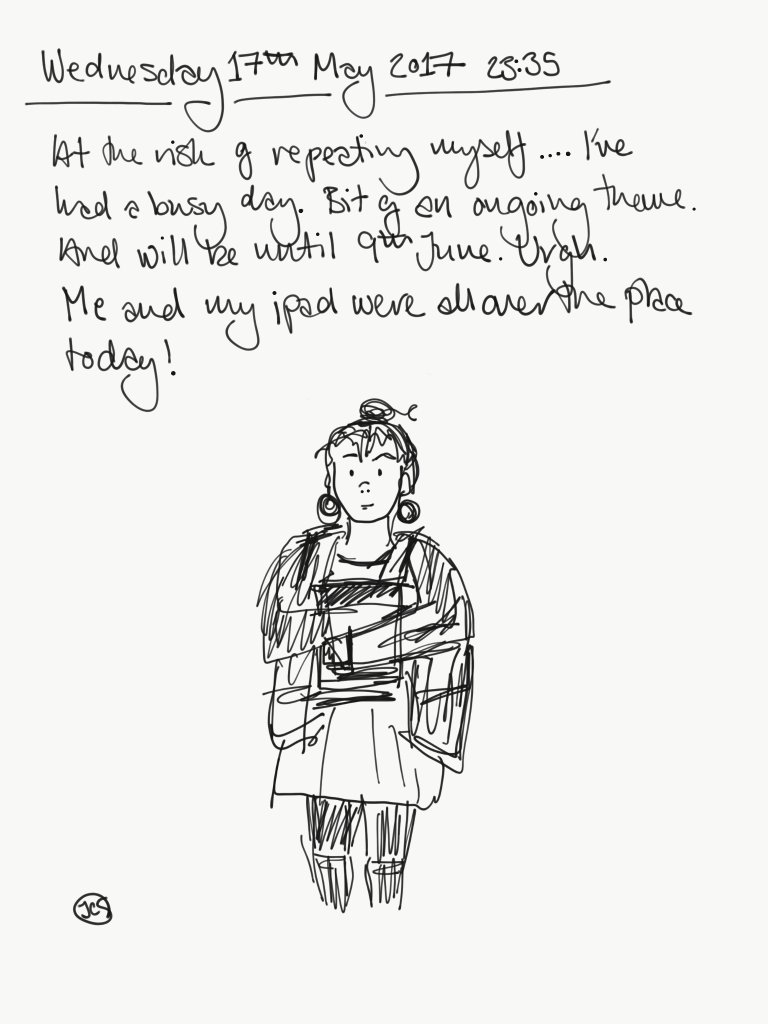 Wednesday 17th May 2017 23:35
At the risk of repeating myself .... I've
had a busy day. Bit of an ongoing theme.
And will be until 9th June. Urgh.
Me and my ipad were all over the place
today!
JCS